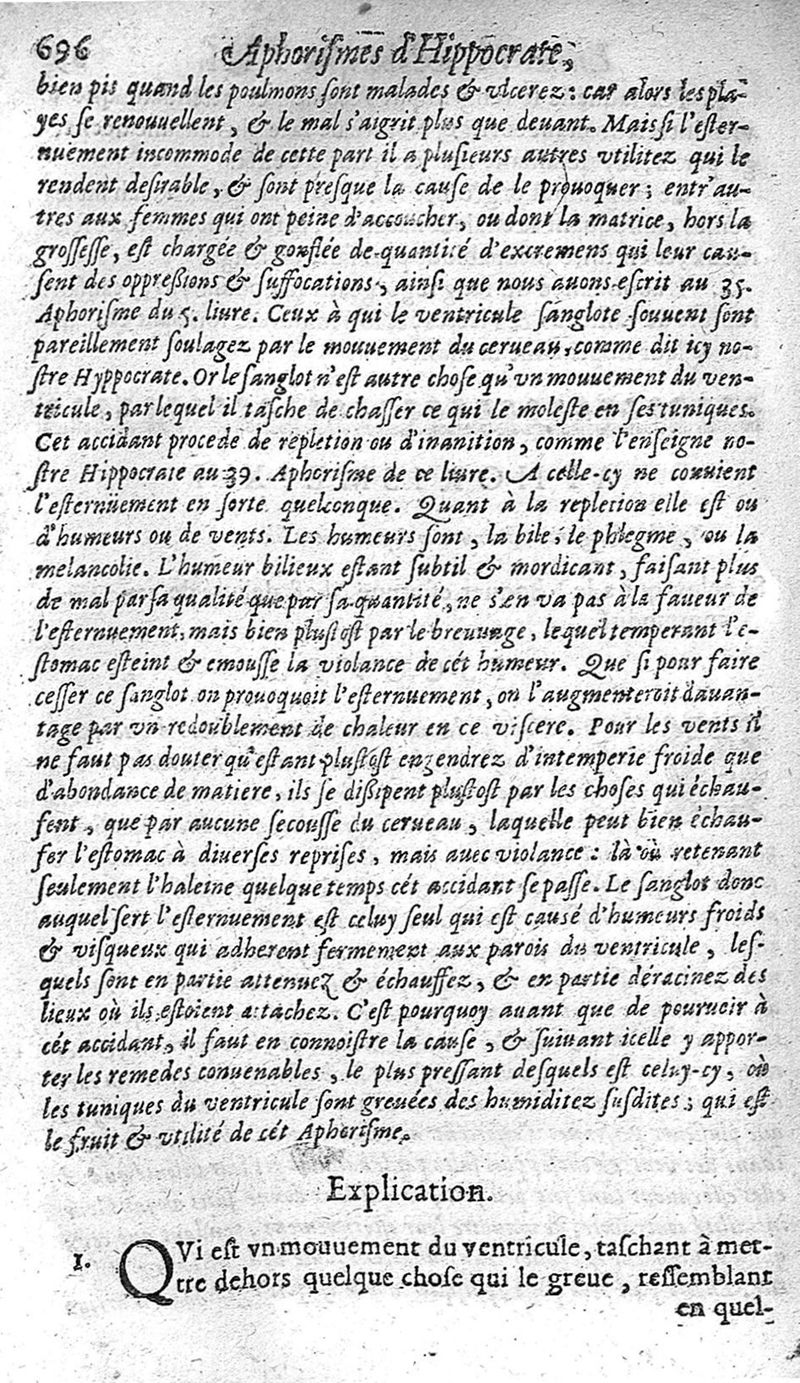 696 Aphorismes d'Hippocrate,
bien pis quand les poulmons sont malades & vlcerez: car alors les pla-
yes se renouuellent, & le mal s'aigrit plus que deuant. Mais si l'ester-
nuement incommode de cette part il a plusieurs autres vtilitez qui le
rendent desirable, & sont presque la cause de le prouoquer; entr'au-
tres aux femmes qui ont peine d'accoucher, ou dont la matrice, hors la
grossesse, est chargée & gonflée de quantité d'excremens qui leur cau-
sent des oppressions & suffocations, ainsi que nous auons escrit au 35.
Aphorisme du 5. liure. Ceux à qui le ventricule sanglote souuent sont
pareillement soulagez par le mouuement du cerueau, comme dit icy no-
stre Hyppocrate. Or le sanglot n'est autre chose qu'vn mouuement du ven-
tricule, par lequel il tasche de chasser ce qui le moleste en ses tuniques.
Cet accidant procede de repletion ou d'inanition, comme l'enseigne no-
stre Hippocrate au 39. Aphorisme de ce liure. A celle-cy ne conuient
l'esternüement en sorte quelconque. Quant à la repletion elle est ou
d'humeurs ou de vents. Les humeurs sont, la bile, le phlegme, ou la
melancolie. L'humeur bilieux estant subtil & mordicant, faisant plus
de mal par sa qualité que par sa quantité, ne s'en va pas à la faueur de
l'esternuement, mais bien plustost par le breuuage, lequel temperant l'e-
stomac esteint & emousse la violance de cét humeur. Que si pour faire
cesser ce sanglot on prouoquoit l'esternuement, on l'augmenteroit dauan-
tage par vn redoublement de chaleur en ce viscere. Pour les vents il
ne faut pas douter qu'estant plustost engendrez d'intemperie froide que
d'abondance de matiere, ils se dissipent plustost par les choses qui échau-
fent, que par aucune secousse du cerueau, laquelle peut bien échau-
fer l'estomac à diuerses reprises, mais auec violance: là où retenant
seulement l'haleine quelque temps cét accidant se passe. Le sanglot donc
auquel sert l'esternuement est celuy seul qui est causé d'humeurs froids
& visqueux qui adherent fermement aux parois du ventricule, les-
quels sont en partie attenuez & échauffez, & en partie déracinez des
lieux où ils estoient attachez. C'est pourquoy auant que de pouruoir à
cét accidant, il faut en connoistre la cause, & suiuant icelle y appor-
ter les remedes conuenables, le plus pressant desquels est celuy-cy, où
les tuniques du ventricule sont greuées des humiditez susdites; qui est
le fruit & vtilité de cét Aphorisme.
Explication.
1. QVi est vn mouuement du ventricule, taschant à met-
tre dehors quelque chose qui le greue, ressemblant
en quel-